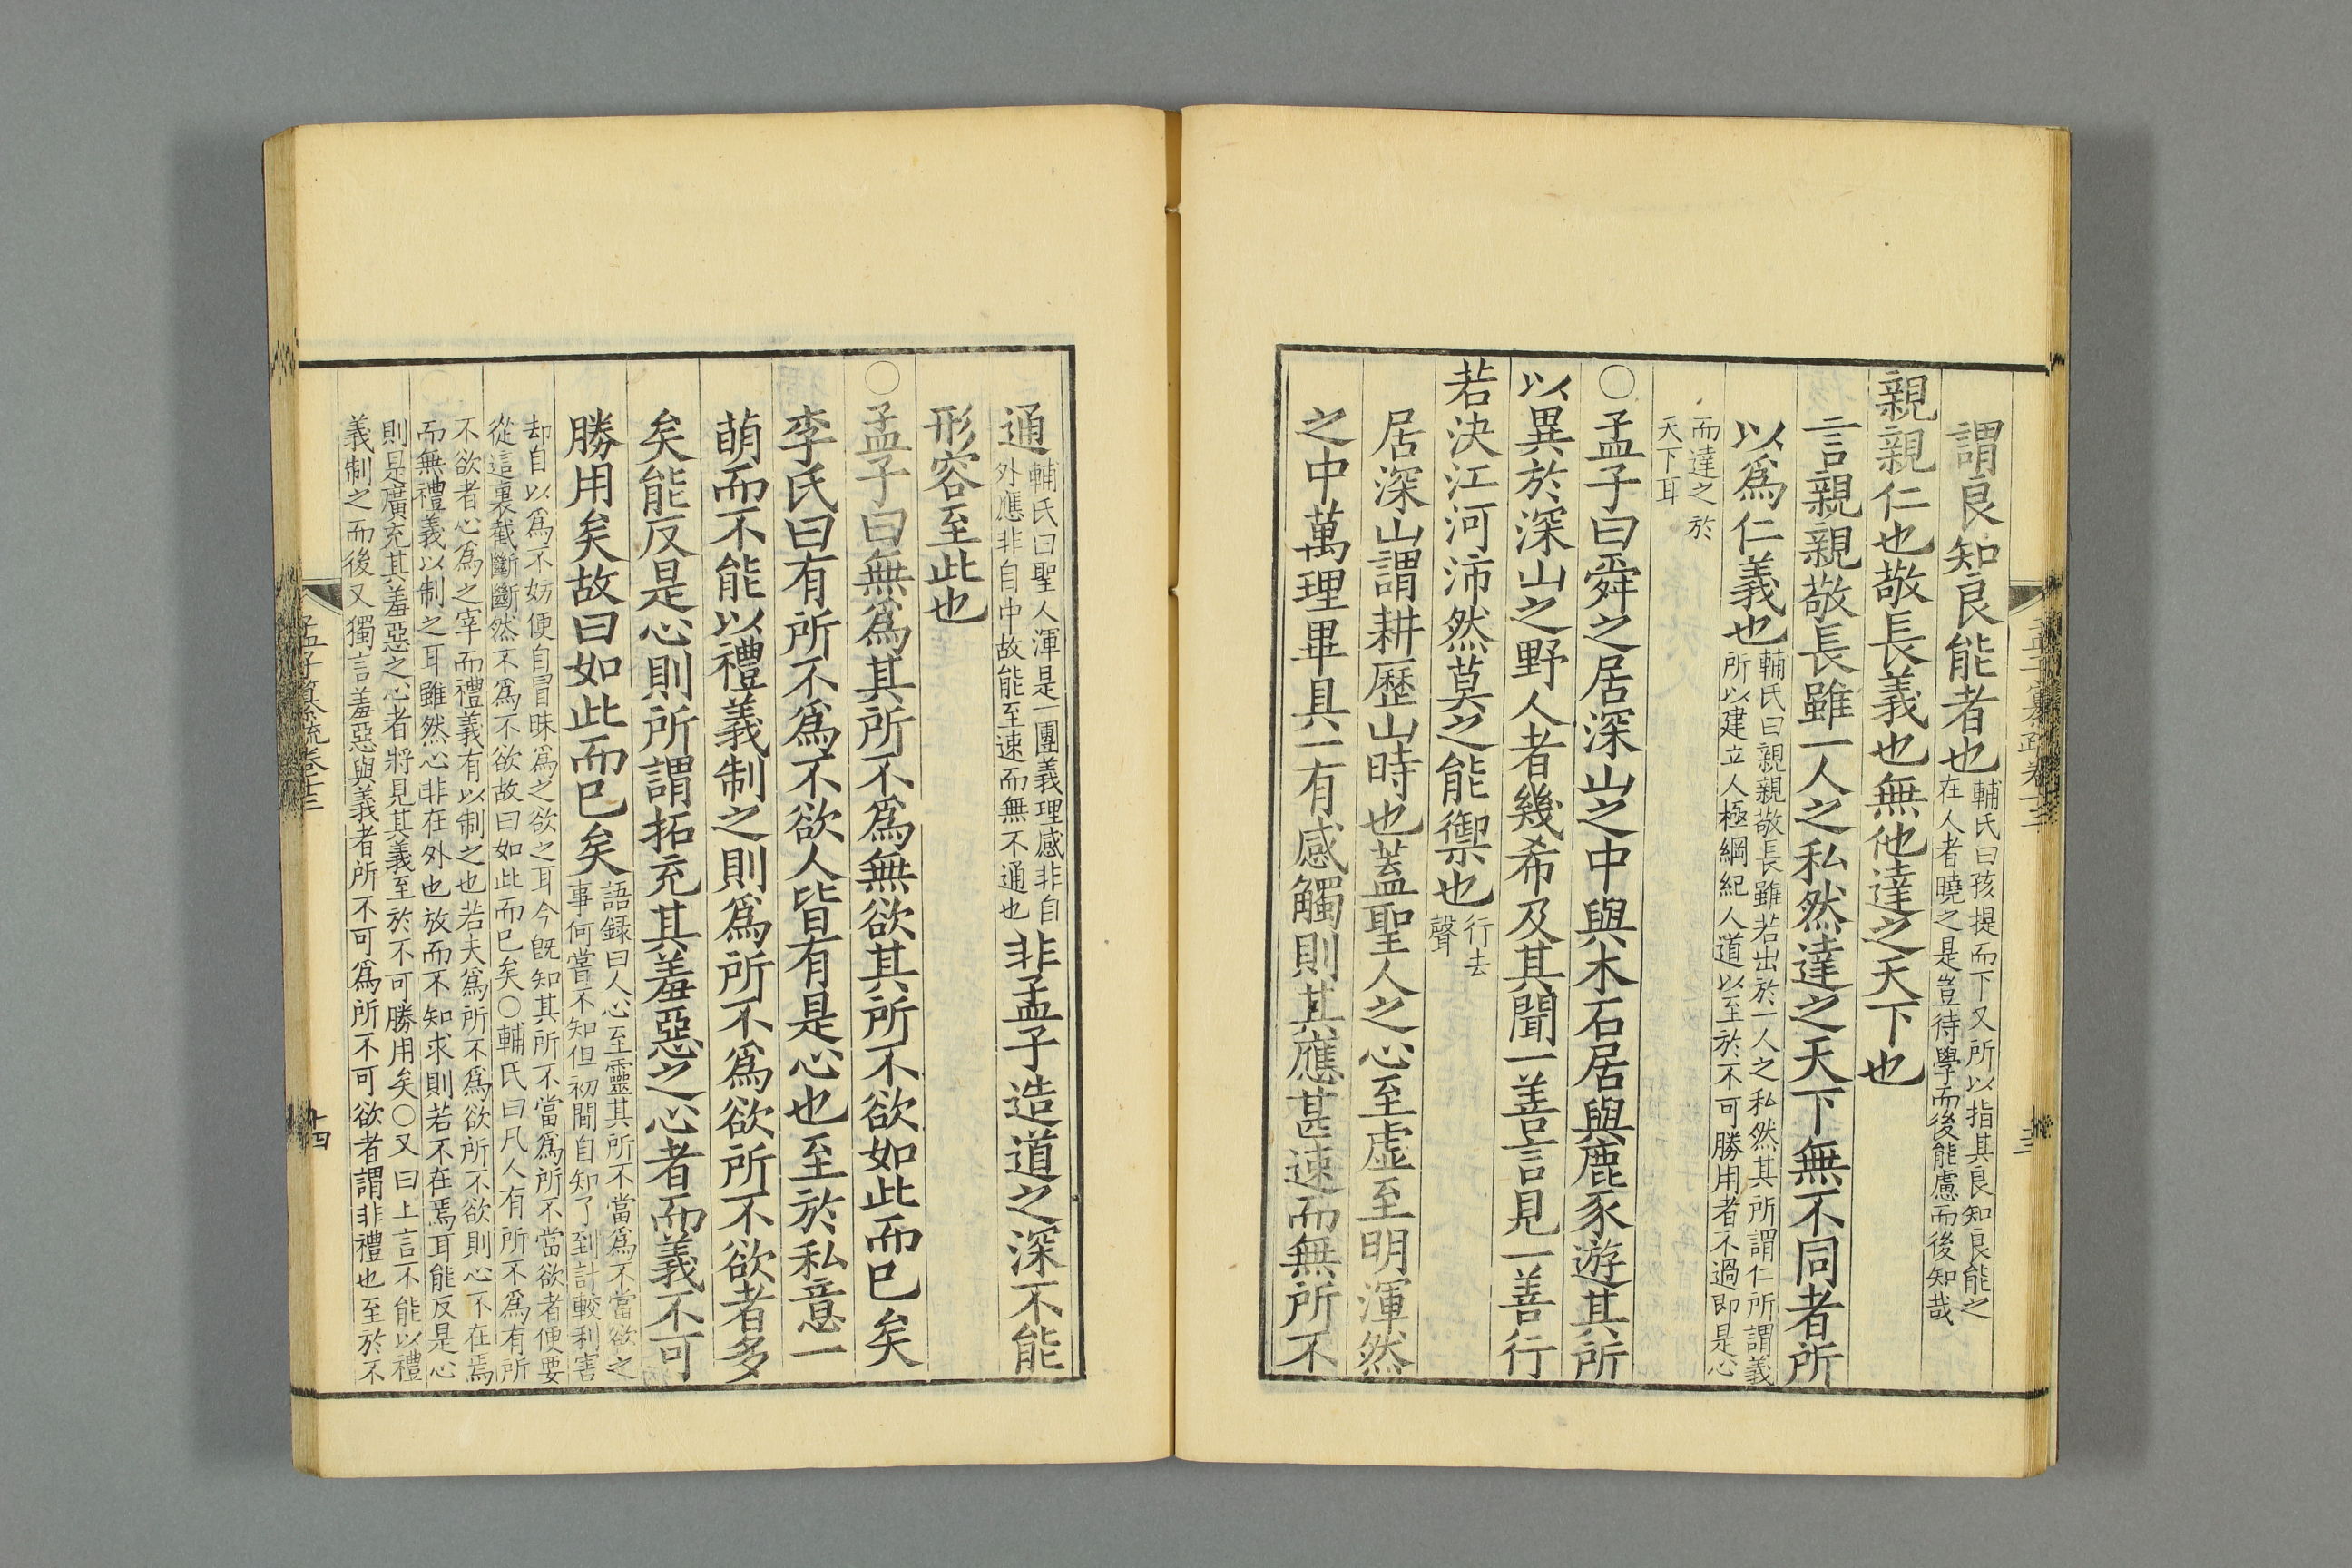 謂良知良能者也輔氏曰孩提而下又所以指其良知良能之
在人者曉之是豈待學而後能慮而後知哉
親親仁也敬長義也無他達之天下也
言親親敬長雖一人之私然達之天下無不同者所
以爲仁義也輔氏曰親親敬長雖若出於一人之私然其所謂仁所謂義
所以建立人極綱紀人道以至於不可勝用者不過即是心
而達之於
天下耳
○孟子曰舜之居深山之中與木石居與鹿豕遊其所
以異於深山之野人者幾希及其聞一善言見一善行
若決江河沛然莫之能禦也行去
聲
居深山謂耕歷山時也蓋聖人之心至虛至明渾然
之中萬理畢具一有感觸則其應甚速而無所不
通輔氏曰聖人渾是一團義理感非自
外應非自中故能至速而無不通也非孟子造道之深不能
形容至此也
○孟子曰無爲其所不爲無欲其所不欲如此而已矣
李氏曰有所不爲不欲人皆有是心也至於私意一
萌而不能以禮義制之則爲所不爲欲所不欲者多
矣能反是心則所謂拓充其羞惡之心者而義不可
勝用矣故曰如此而已矣語録曰人心至靈其所不當爲不當欲之
事何嘗不知但初間自知了到計較利害
却自以爲不妨便自冒昧爲之欲之耳今旣知其所不當爲所不當欲者便要
從這裏截斷斷然不爲不欲故曰如此而已矣○輔氏曰凡人有所不爲有所
不欲者心爲之宰而禮義有以制之也若夫爲所不爲欲所不欲則心不在焉
而無禮義以制之耳雖然心非在外也放而不知求則若不在焉耳能反是心
則是廣充其羞惡之心者將見其義至於不可勝用矣○又曰上言不能以禮
義制之而後又獨言羞惡與義者所不可爲所不可欲者謂非禮也至於不
孟子纂疏卷十三
十四